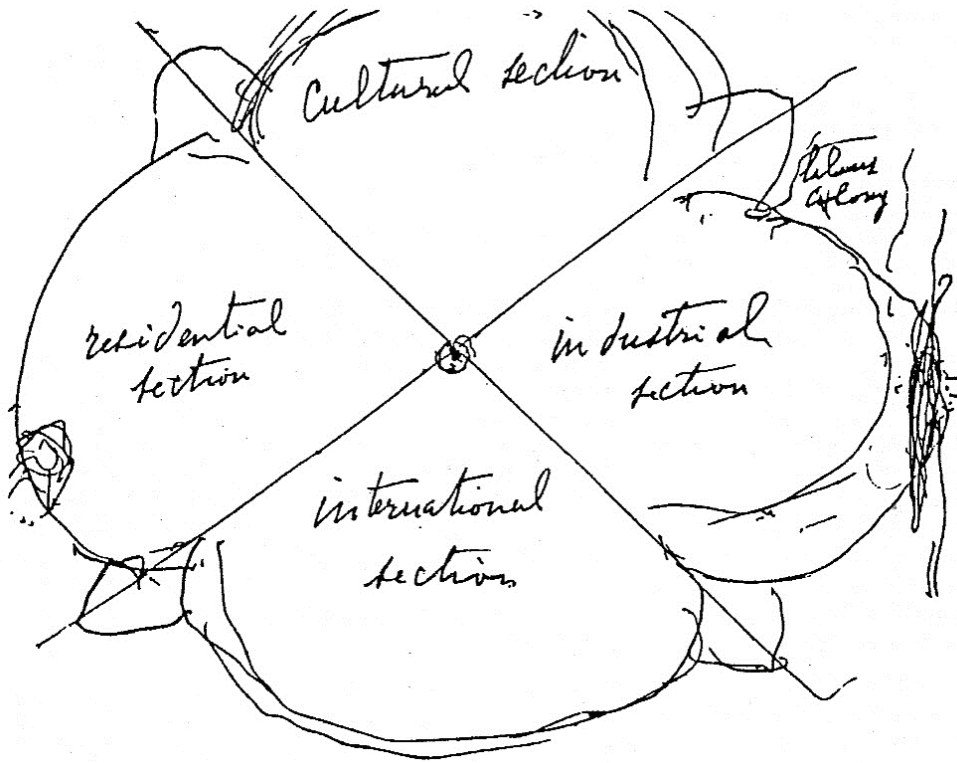 Cultural section
colony
residential
section
industrial
section
international
section